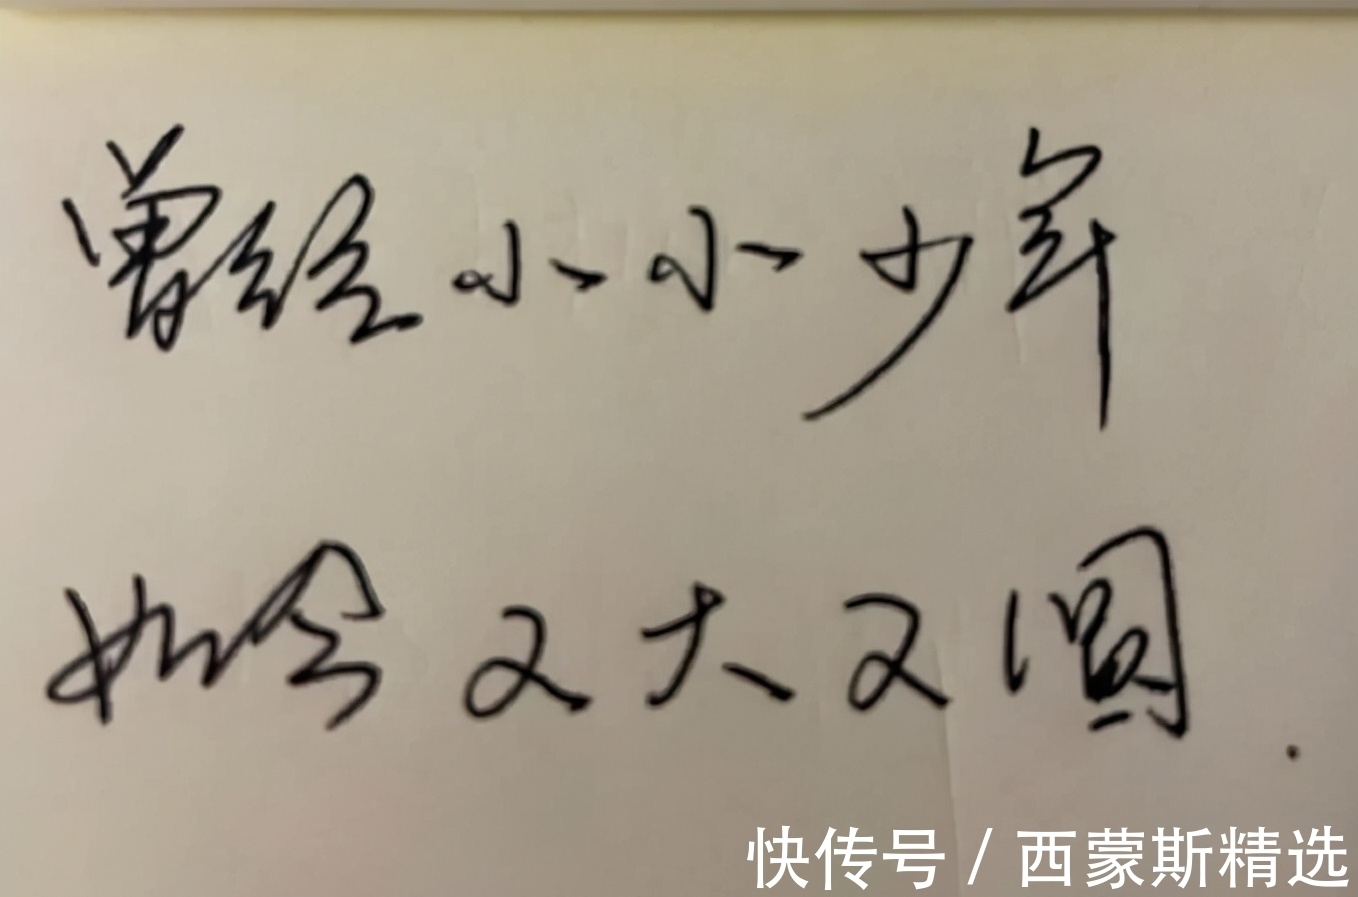 曾经小小少年
如今又大又圆.
快传号/西蒙斯精选